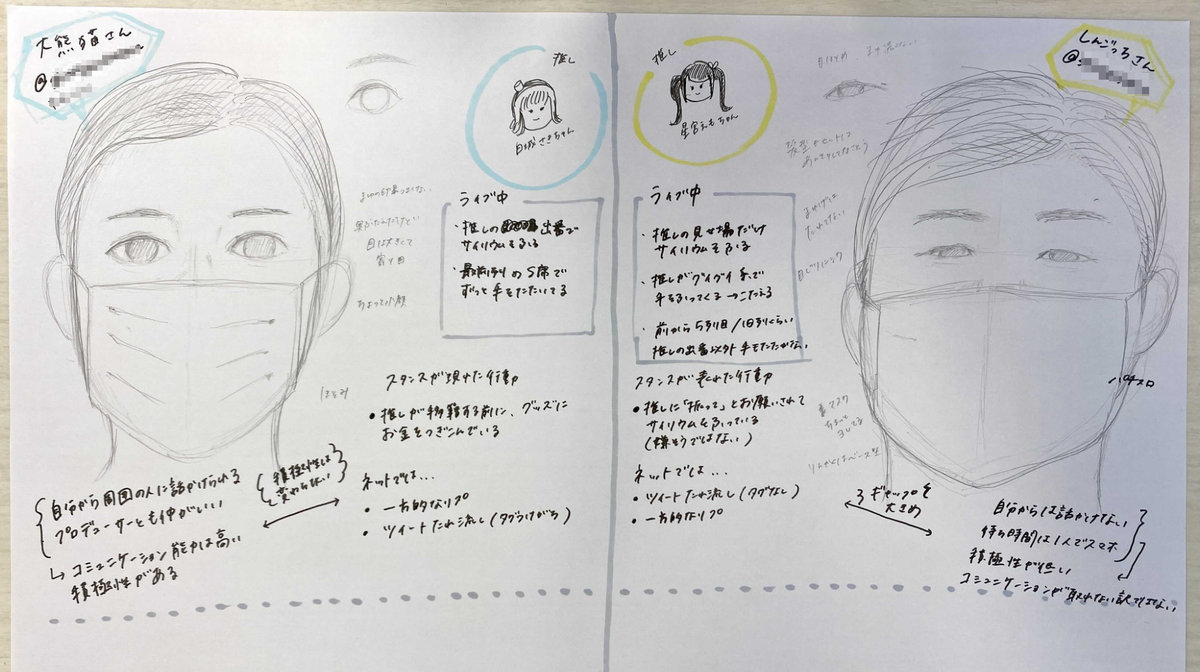 大熊猫さん
@
推し
白城さきちゃん
ライブ中
・推しの出番で
サイリウムをふる
・最前列のS席で
ずっと手をたたいてる
目は大きくて
寄り目
ちょっと小顔
スタンスが現れた行動
・推しが移籍する前に、グッズに
お金をつぎこんでいる
自分から周囲の人に話かけられる
プロデューサーとも仲がいい
↳コミュニケーション能力は高い
積極性がある
積極性は
変わらない
ネットでは…
・一方的なリプ
・ツイートたれ流し(タグつけがち)
しんごっちさん
@
推し
星宮えもちゃん
ライブ中
・推しの見せ場だけ
サイリウムをふる
・推しがグイグイ手で
手をふってくる→こたえる
・前から5列目/10列くらい
推しの出番以外手をたたかない
スタンスが表れた行動
・推しに「振って」とお願いされて
サイリウムをふっている
(嫌そうではない)
ネットでは…
・ツイートたれ流し(タグなし)
・一方的なリプ
ギャップを
大きめ
自分からは話かけない
待ち時間は1人でスマホ
積極性が低い
コミュニケーションが取れない訳ではない